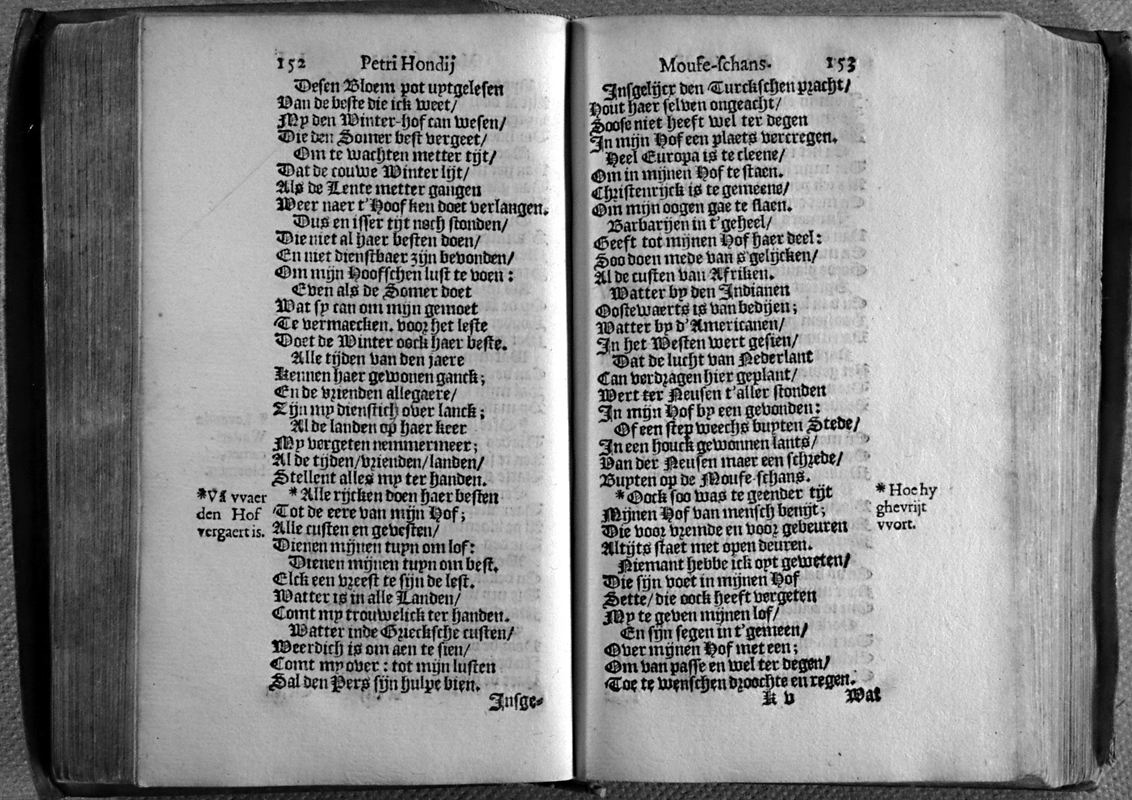 152 Petri Hondij
Desen Bloem pot uytgelesen
Van de beste die ick weet/
My den Winter-hof can wesen/
Die den Somer best vergeet/
Om te wachten metter tijt/
Dat de couwe Winter lijt/
Als de Lente metter gangen
Weer naer t'Hoofken doet verlangen.
Dus en isser tijt noch stonden/
Die niet al haer besten doen/
En niet dienstbaer zijn bevonden/
Om mijn Hoofschen lust te voen:
Even als de Somer doet
Wat sy can om mijn gemoet
Te vermaecken, voor het leste
Doet de Winter oock haer beste.
Alle tijden van den jaere
Kennen haer gewonen ganck;
En de vrienden allegaere/
Zijn my dienstich over lanck;
Al de landen op haer keer
My vergeten nemmermeer;
Al de tijden/vrienden/landen/
Stellent alles my ter handen.
* Alle rijcken doen haer besten
Tot de eere van mijn Hof;
Alle custen en gevesten/
Dienen mijnen tuyn om lof:
Dienen mijnen tuyn om best.
Elck een vreest te sijn de lest.
Watter is in alle Landen/
Comt my trouwelick ter handen.
Watter inde Griecksche custen/
Weerdich is om aen te sien/
Comt my over: tot mijn lusten
Sal den Pers sijn hulpe bien.
Insge-
*Vā vvaer
den Hof
vergaert is.
Moufe-schans. 153
Insgelijcx den Turckschen pracht/
Hout haer selven ongeacht/
Soose niet heeft wel ter degen
In mijn Hof een plaets vercregen.
Heel Europa is te cleene/
Om in mijnen Hof te staen.
Christenrijck is te gemeene/
Om mijn oogen gae te slaen.
Barbarijen in t'geheel/
Geeft tot mijnen Hof haer deel:
Soo doen mede van s'gelijcken/
Al de custen van Afriken.
Watter by den Indianen
Oostewaerts is van bedijen;
Watter by d'Americanen/
In het Westen wert gesien/
Dat de lucht van Nederlant
Can verdragen hier geplant/
Wert ter Neusen t'aller stonden
In mijn Hof by een gevonden:
Of een step weechs buyten Stede/
In een houck gewonnen lants/
Van der Neusen maer een schrede/
Buyten op de Moufe-schans.
* Oock soo was te geender tijt
Mijnen Hof van mensch benijt;
Die voor vremde en voor gebeuren
Altijts staet met open deuren.
Niemant hebbe ick oyt geweten/
Die sijn voet in mijnen Hof
Sette/die oock heeft vergeten
My te geven mijnen lof/
En sijn segen in t'gemeen/
Over mijnen Hof met een;
Om van passe en wel ter degen/
Toe te wenschen droochte en regen.
K v Wat
* Hoe hy
ghevrijt
vvort.